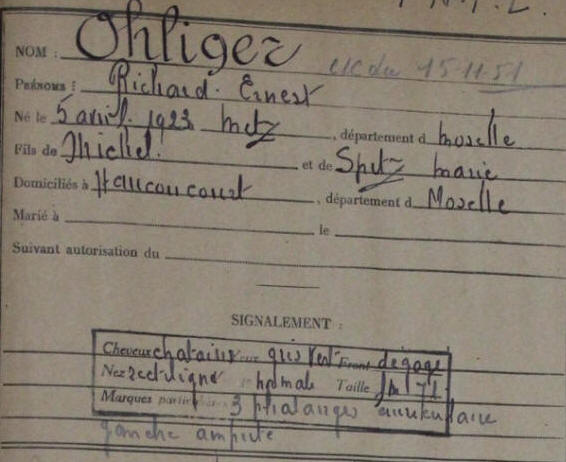 NOM : Ohliger
c/c du 15-11-51
PRÉNOMS : Richard. Ernest
Né le 5 avril. 1923 Metz, département d Moselle
Fils de Michel. et de Spitz marie
Domiciliés à Haucoucourt, département d Moselle
Marié à le
Suivant autorisation du
SIGNALEMENT :
Cheveux chatains Yeux gris vert Front dégagé
Nez rectiligne normale Taille 1m 71
Marques particulières 3 phalanges auriculaire
gauche amputé